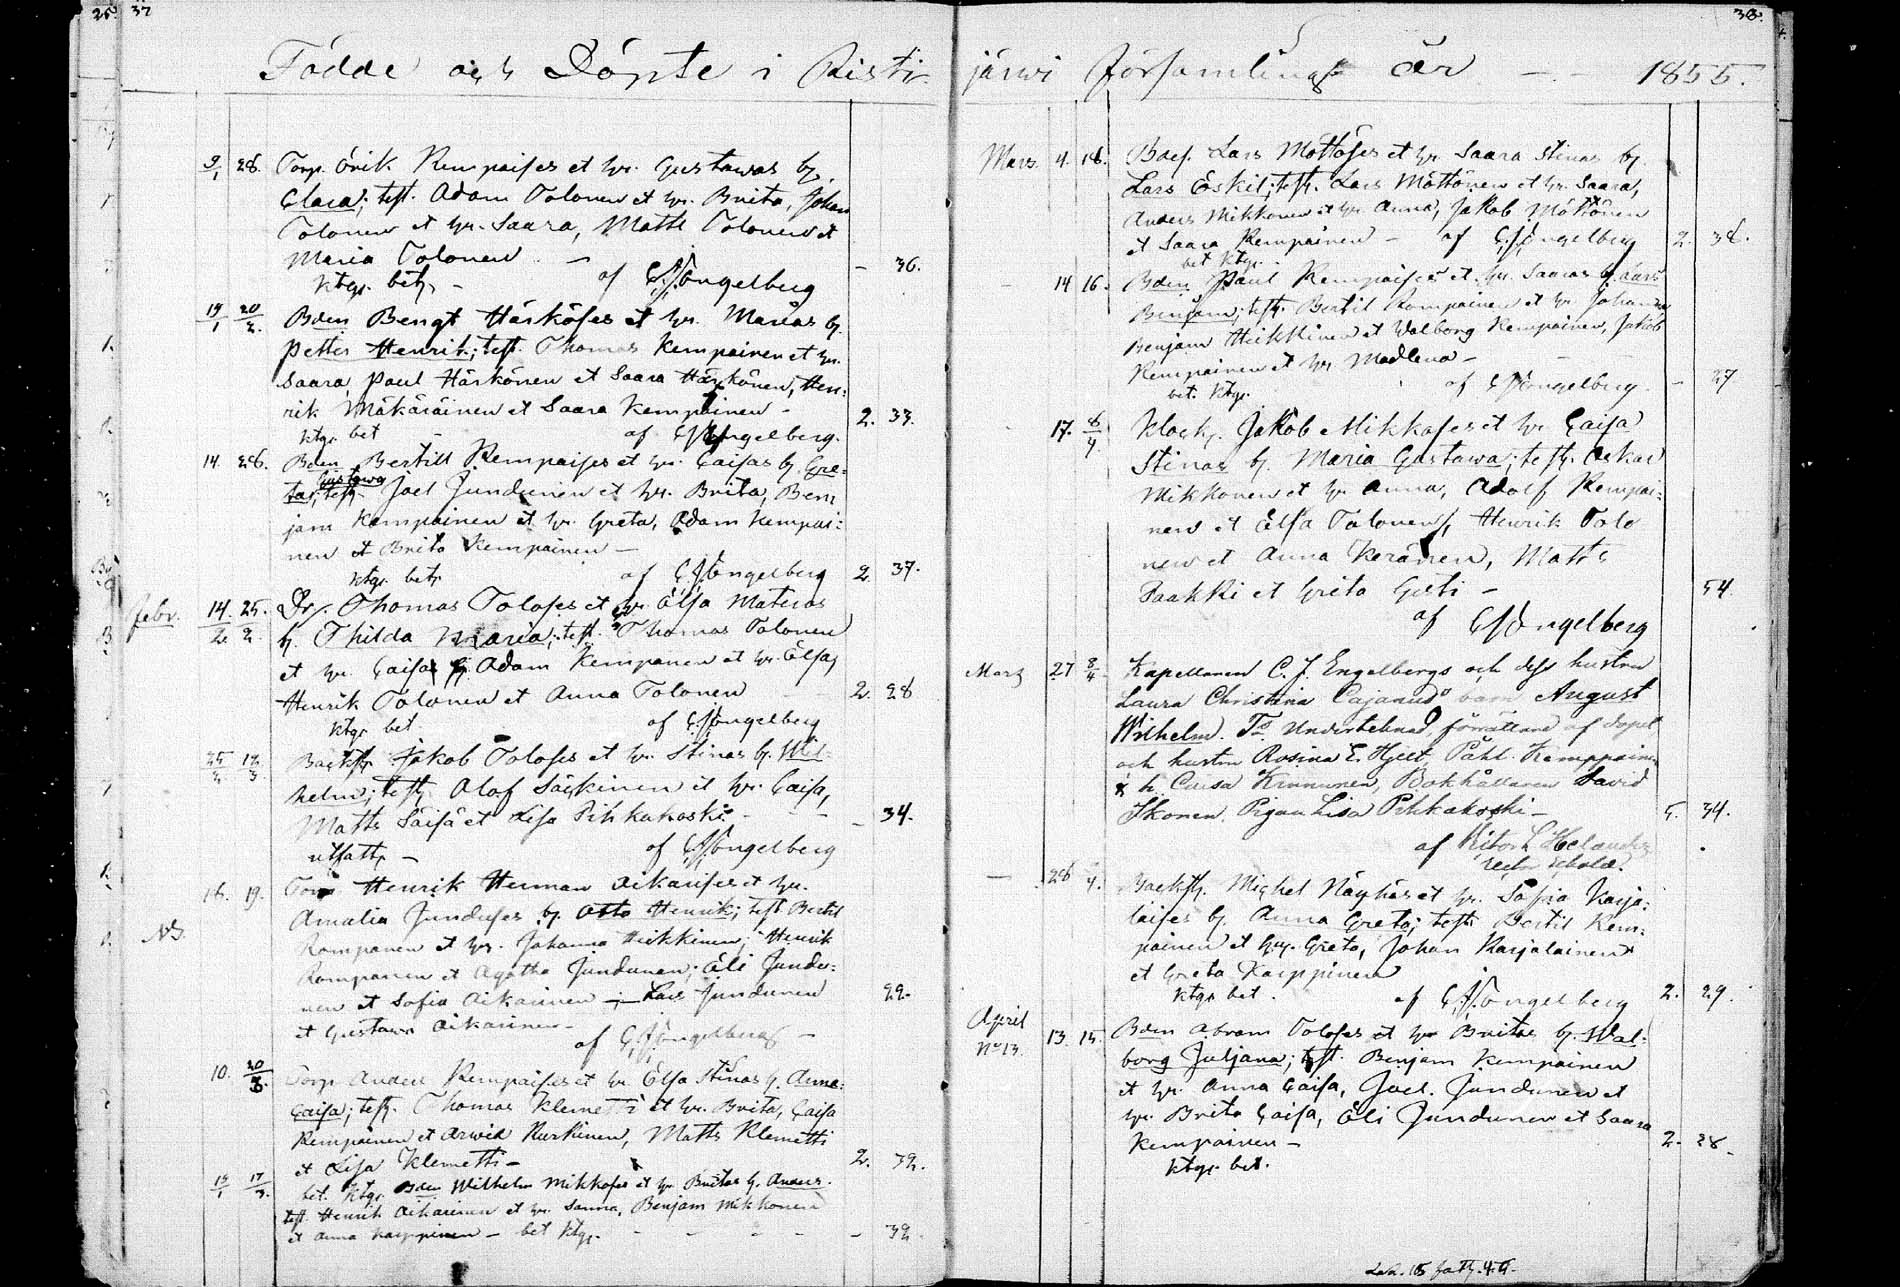 25. 37
38.
Födde och Döpte i Risti-
järwi församling år — 1855.
9/1 28. Torp. Erik Kempaises et hr. Gustawas b.
Clara; test. Adam Tolonen et hr. Brita, Johan
Tolonen et hr. Saara, Matts Tolonen et
Maria Tolonen — – 36.
ktgr. bet. – af CJEngelberg
19/1 20/2. Bden Bengt Härköses et hr. Marias b.
Petter Henrik; test. Thomas Kempainen et hr.
Saara, Paul Härkönen et Saara Härkönen, Hen-
rik Mäkäräinen et Saara Kempainen – 2. 33.
ktgr. bet – af CJEngelberg.
14. 26. Bden Bertill Kempaises et hr. Caisas b. Gre-
Gustawa
tas; test. Joel Jundunen et hr. Brita, Ben
jam Kempainen et hr. Greta, Adam Kempai-
nen et Brita Kempainen –
ktgr. bet. af CJEngelberg 2. 37.
Febr. 14/2. 25./2. Dr. Thomas Toloses et hr. Elsa Materas
b. Thilda Maria; test. Thomas Tolonen
et hr. Caisa Adam Kempanen et hr. Elsa,
Henrik Tolonen et Anna Tolonen – 2. 28
ktgr bet af CJEngelberg
25/2. 12/3. Backst. Jakob Toloses et hr. Stinas b. Wil-
helm; test. Olof Säckinen et hr. Caisa,
Matts Säisä et Lisa Pihkakoski – – 34.
utfatt. – af CJEngelberg
16. 19. Torp Henrik Herman Aikarises et hr.
Amalia Junduses b. Otto Henrik; test Bertil
NB. Rompanen et hr. Johanna Heikkinen, Henrik
Rompanen et Agatha Jundunen; Eli Jundu-
nen et Sofia Aikarinen – Lars Jundunen 22.
et Gustawa Aikarinen –
af CJEngelberg –
10. 20/3. Torp Anders Kempaises et hr. Elsa Stinas b. Anna
Caisa; test. Thomas Klemetti et hr. Brita, Caisa
Kempainen et Arwid Kurkinen, Matts Klemetti
et Lisa Klemetti – 2. 32.
15/1 17/3. bet. ktgr. Bden Wilhelm Mikkoses et hr Britas b. Anders.
test. Henrik Aikarinen et hr. Sanna, Benjam Mikkonen
et Anna Karppinen – bet ktgr. – 39.
Mars 4. 18. Bdes. Lars Möttöses et hr. Saara Stinas b.
Lars Eskil; test. Lars Möttönen et hr. Saara,
Anders Mikkonen et hr Anna, Jakob Möttönen
et Saara Kempainen – af CJEngelberg 2. 38.
bet ktgr.
– 14 16. Bden Paul Kempaises et hr. Saaras b. Lars
Binjam; test. Bertil Rompainen et hr Johanna
Benjam Heikkinen et Walborg Kempainen, Jakob
Kempainen et hr Madlena –
bet. ktgr. af CJEngelberg. – 27
17. 8/4 Klock. Jakob Mikkoses et hr Caisa
Stinas b. Maria Gustawa; test. Oskar
Mikkonen et hr Anna, Adolf Kempai-
nen et Elsa Tolonen, Henrik Tolo
nen et Anna Keränen, Matts
Paakki et Greta – 54.
af CJEngelberg
Mars 27 8/4 Kapellanen C. J. Engelbergs och dess hustru
Laura Christina Cajanus barn August
Wilhelm. Ts. Undertecknad, förrättare af dopet
och hustru Rosina E. Hjelt, Påhl Kemppainen
& h. Caisa Kinnunen, Bokhållaren David
Ikonen Pigan Lisa Pihkakoski – 5. 34.
af Helander
– 28 /4. Backst. Michel Näykäs et hr. Sofia Karja-
laises b. Anna Greta; test. Bertil Kem-
painen et hr. Greta, Johan Karjalainen
et Greta Karppinen
ktgr bet. af CJEngelberg 2. 29.
April
No 13. 13. 15. Bden Abram Toloses et hr Britas b. Wal-
borg Juljana; test. Benjam Kempainen
et hr. Anna Caisa, Joel. Jundunen et
hr. Brita Caisa, Eli Jundunen et Saara
Kempainen – 2. 28.
ktgr. bet.